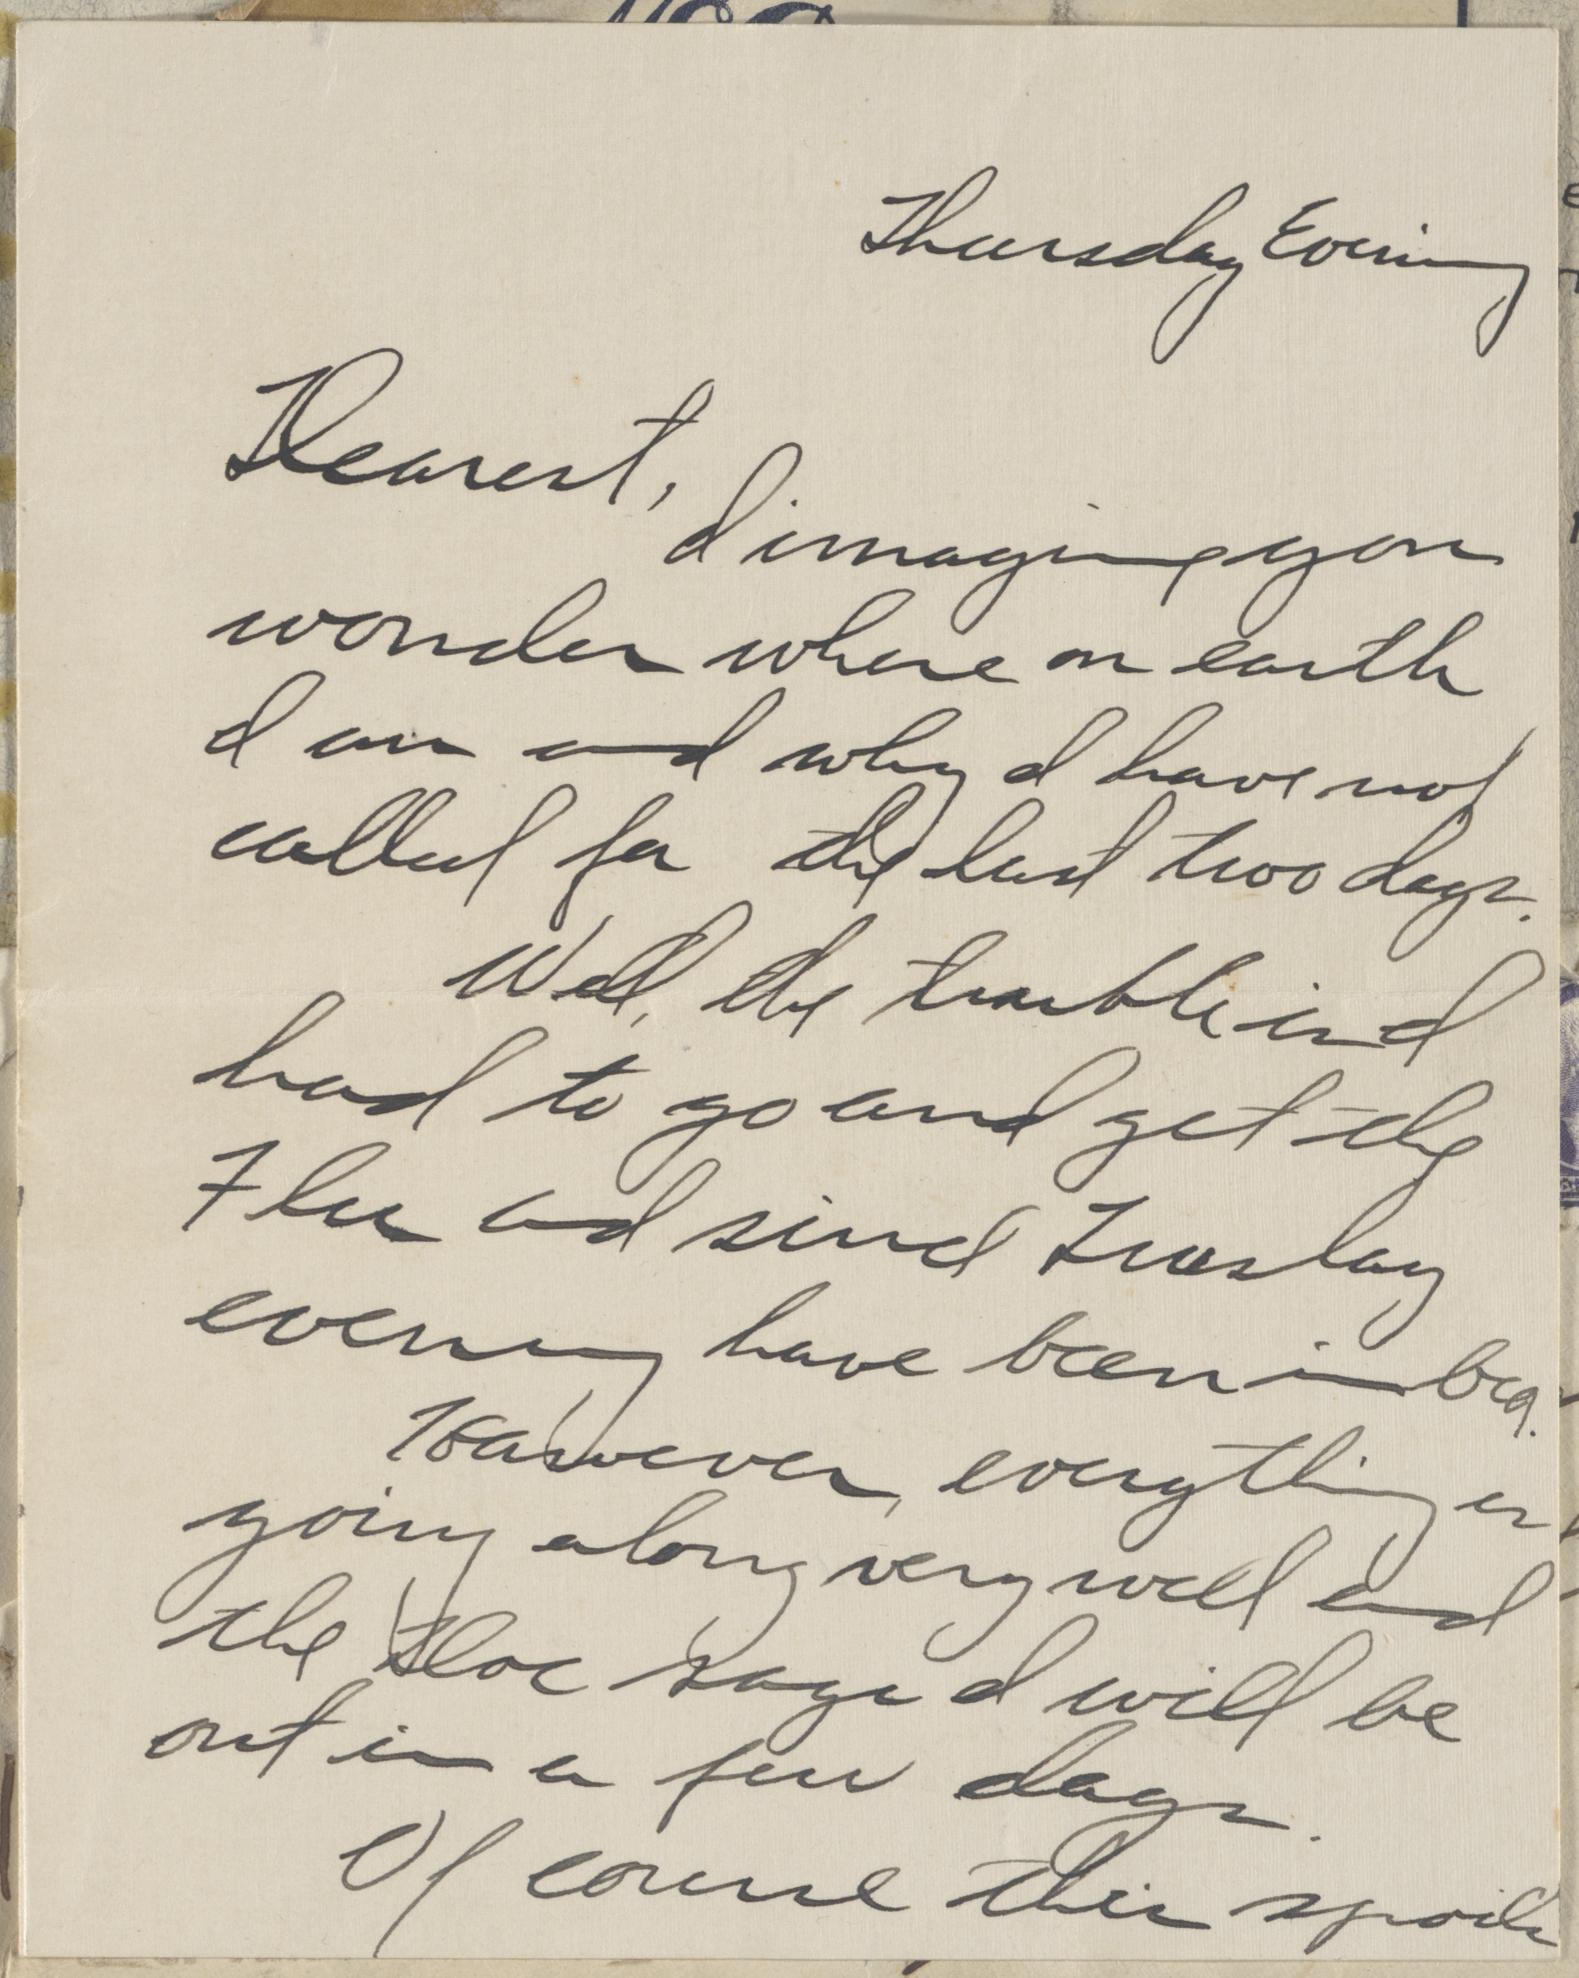 Thursday Evening
Dearest,
I imagine you
wonder where on earth
I am and why I have not
called for the last two days.
Well, the trouble is I
had to go and get the
Flu and since Tuesday
evening have been in bed.
However, everything is
going along very well and
the Doc says I will be
out in a few days.
Of course this spoils